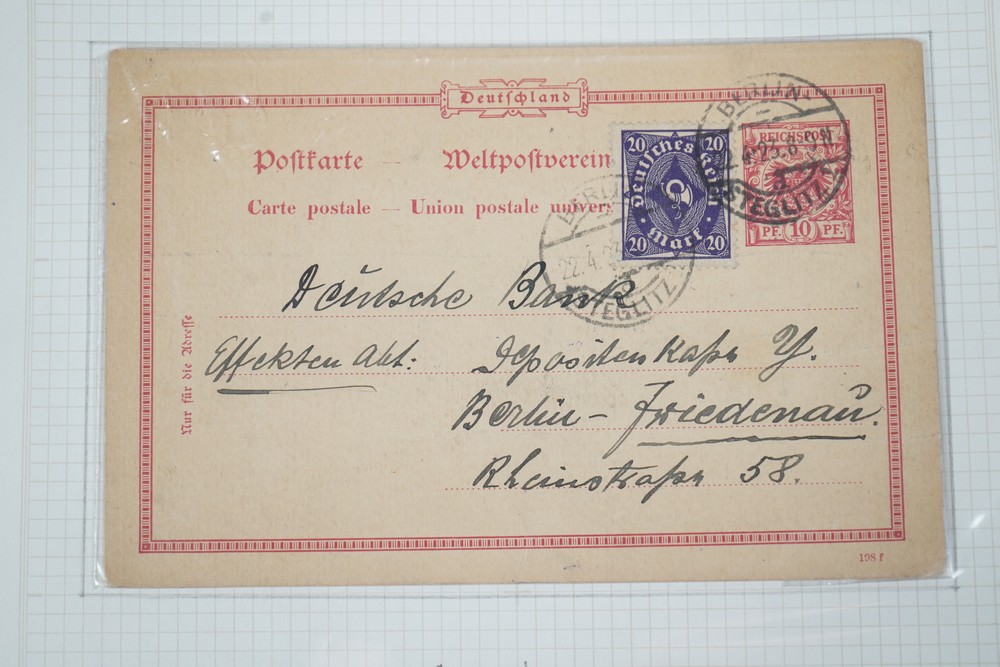 Deutschland
Postkarte — Weltpostverein
Carte postale — Union postale univers
20 Deutsches Reich 20
20 Mark 20
REICHSPOST
PF. 10 PF.
BERLIN
STEGLITZ
BERLIN
22.4.23
STEGLITZ
Deutsche Bank
Effekten Abt: Depositenkasse Y.
Berlin-Friedenau.
Rheinstraße 58.
Nur für die Adresse
198 f